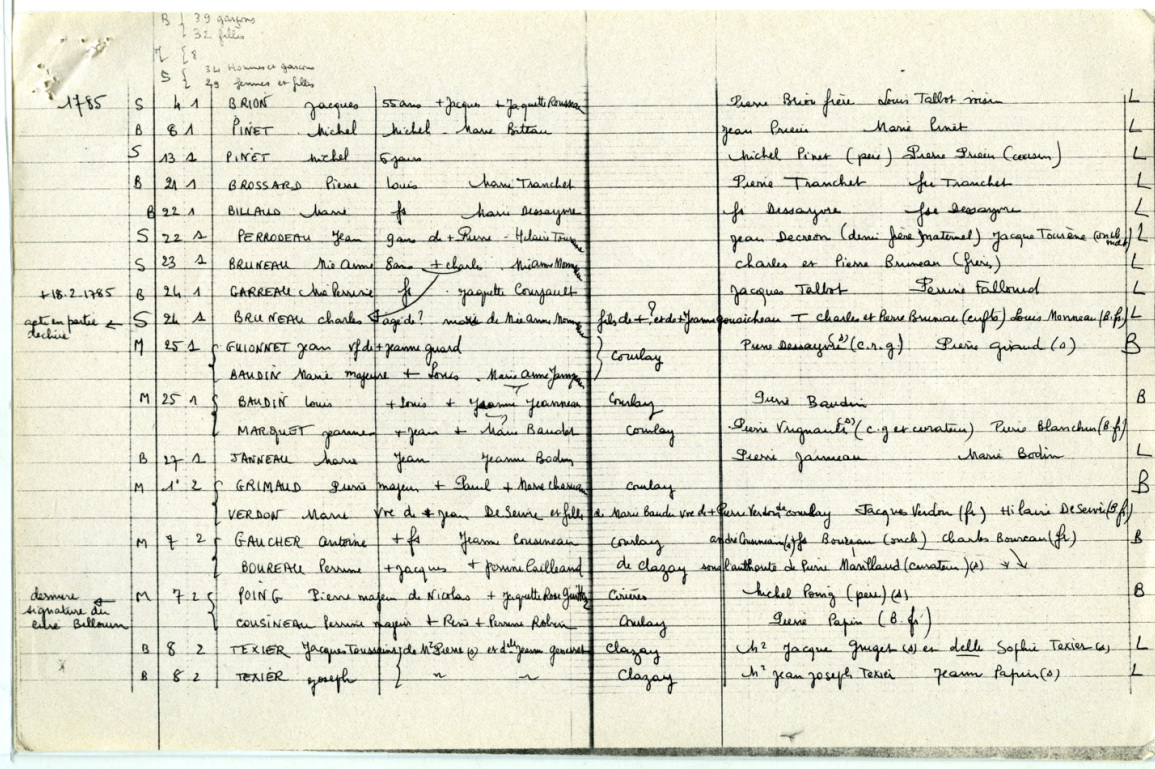 B { 39 garçons
32 filles
M { 8
S { 34 Hommes et garçons
29 femmes et filles
1785 S 4 1 BRION Jacques 55 ans + Jacques + Jaquette Rousseau Pierre Brion frère Louis Talbot L
B 8 1 PINET Michel Michel Marie Biteau Jean Marie Pinet L
S 13 1 PINET Michel 5 jours Michel Pinet (père) Pierre (cousin) L
B 21 1 BROSSARD Pierre Louis Marie Tranchet Pierre Tranchet fse Tranchet L
B 22 1 BILLAUD Marie fs Marie Dessayvre fs Dessayvre fse Dessayvre L
S 22 1 PERRODEAU Jean 9 ans de + Pierre Hilaire Jean Decreon (demi frère maternel) Jacque Tourène (oncle mat) L
S 23 1 BRUNEAU Mie Anne 8 ans + charles Mie Anne charles et Pierre Bruneau (frères) L
+ 18.2.1785 B 24 1 GARREAU Mie Perrine fs Jaquette Coursault Jacques Talbot Perrine Fallound L
acte en partie déchiré ← S 24 1 BRUNEAU charles agé de ? de Mie Anne fils de + ? et de + Jeanne T charles et Pierre Bruneau Louis Monneau (B.f) L
M 25 1 { GUIONNET Jean vf de + Jeanne guard } Courlay Pierre Dessayvre (s) (c.r.g.) Pierre Giraud (s) B
BAUDIN Marie majeure + Louis Marie Anne
M 25 1 { BAUDIN Louis + Louis + Jeanne Jeanneau Courlay Pierre Baudin B
MARQUET Jeanne + Jean + Marie Baudet Courlay Pierre Vrignault (s) (c.g et curateur) Pierre Blanchin (B.f)
B 27 1 JANNEAU Marie Jean Jeanne Bodin Pierre Janneau Marie Bodin L
M 1° 2 { GRIMAUD Pierre majeur + Paul + Marie Courlay B
VERDON Marie Vve de + Jean De Seivre et fille de Marie Baudu vve de + Pierre Verdon de courlay Jacques Verdon (fr) Hilaire De Seivre (B.f)
M 7 2 { GAUCHER Antoine + fs Jeanne Cousineau Courlay andré Cousineau (s) fs Boureau (oncle) charles Boureau (fr) B
BOUREAU Perrine + Jacques + Perrine Cailleaud de Clazay sous l'authorité de Pierre Marillaud (curateur) (s) ↓ ↓
dernière signature du curé Billoum ← M 7 2 { POING Pierre majeur de Nicolas + Jaquette Rose Cirières Michel Poing (père) (s) B
COUSINEAU Perrine majeure + René + Perrine Robin Courlay Pierre Papin (B.fr)
B 8 2 TEXIER Jacques Toussaint { de Mr Pierre (s) et delle Jeanne Clazay Mr Jacque Gruget (s) et delle Sophie Texier (s) L
B 8 2 TEXIER Joseph { " " Clazay Mr Jean Joseph Texier Jeanne Papin (s) L